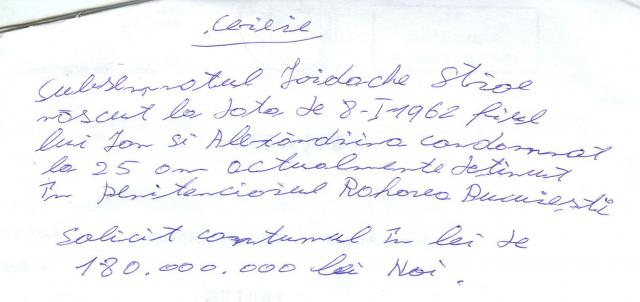 Cerere
Subsemnatul Iordache Stroe
născut la data de 8-I-1962 fiul
lui Ion si Alexandrina condamnat
la 25 ani actualmente detinut
în penitenciarul Rahova Bucuresti
Solicit cuantumul în lei de
180.000.000 lei Noi.